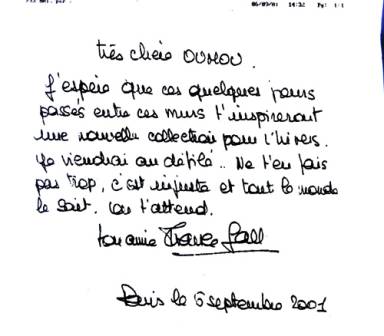 06/09/01 14:32 Pg: 1/1
très chère OUMOU.
J'espère que ces quelques jours
passés entre ces murs t'inspireront
une nouvelle collection pour l'hiver.
Je viendrai au défilé.. Ne t'en fais
pas trop, c'est injuste et tout le monde
le sait. On t'attend.
ton amie France Gall
Paris le 6 septembre 2001